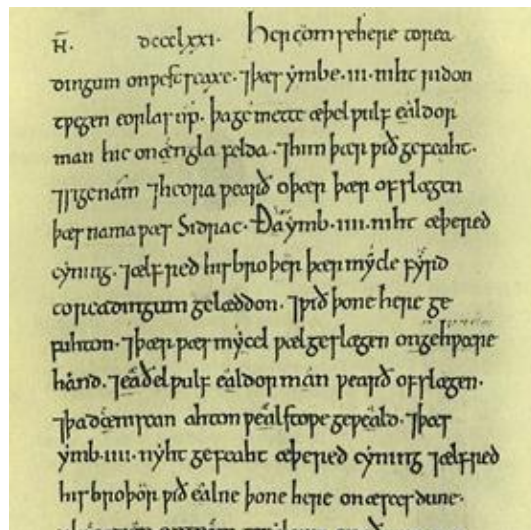 H̅. dccclxxi. Her com se here to rea
dingum on ƿestseaxe. ⁊ þæs ẏmbe .iii. niht ridon
tƿegen eorlas up. þa ge mette æþelƿulf ealdor
man hie on ængla felda. ⁊ him þær ƿið gefeaht.
⁊ sige nam ⁊ heora ƿearð oþær þær ofslægen
þæs nama ƿæs Sidrac. Ða ẏmb .iiii. niht æþered
cẏning. ⁊ ælfred his broþer þær mẏcle fẏrd
to readingum gelæddon. ⁊ ƿið þone here ge
fuhton. ⁊ þær ƿæs mẏcel ƿælgeslægen on
hand. ⁊ eaðelƿulf ealdorman ƿearð ofslægen.
⁊ þa ahton geƿeald. ⁊ þæs
ẏmb .iiii. nẏht gefeaht æþered cẏning ⁊ ælfred
his broþor ƿið ealne þone here on æscesdune.